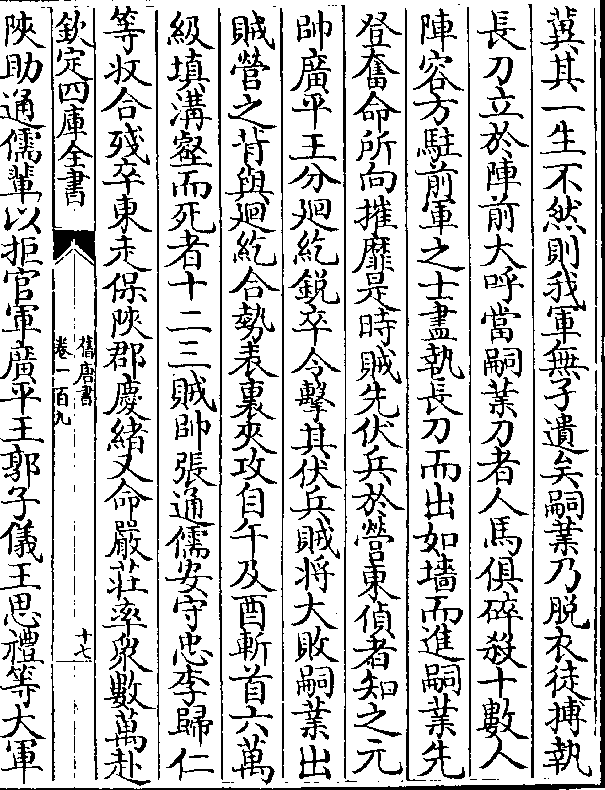 冀其一生不然則我軍無孑遺矣嗣業乃脱衣徒搏執
長刀立於陣前大呼當嗣業刀者人馬俱碎殺十數人
陣容方駐前軍之士盡執長刀而出如墻而進嗣業先
登奮命所向摧靡是時賊先伏兵於營東偵者知之元
帥廣平王分廻紇鋭卒令擊其伏兵賊将大敗嗣業出
賊營之背與廻紇合勢表裏夾攻自午及酉斬首六萬
級填溝壑而死者十二三賊帥張通儒安守忠李歸仁
等收合殘卒東走保陜郡慶緒又命嚴莊率衆數萬赴
欽定四庫全書
舊唐書
卷一百九
十七
陜助通儒輩以拒官軍廣平王郭子儀王思禮等大軍